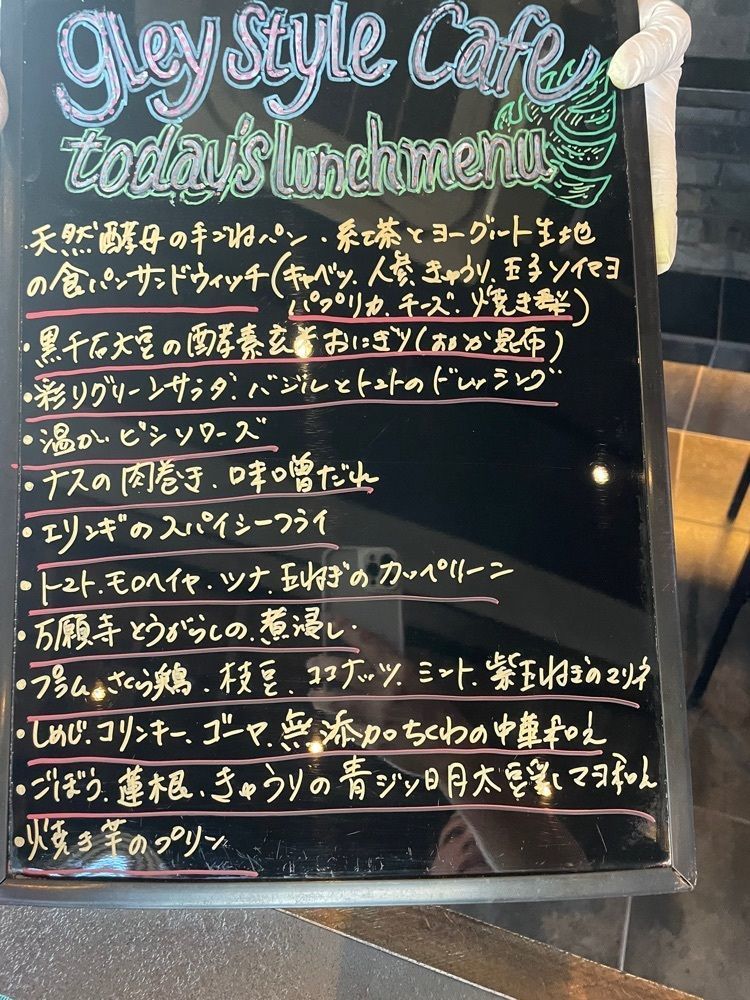 gley style Cafe
today's lunch menu
・天然酵母の手ごねパン・紅茶とヨーグルト生地
の食パンサンドウィッチ(キャベツ、人参、きゅうり、玉子、ソイマヨ
パプリカ、チーズ、焼き梨)
・黒千石大豆の酵素玄米おにぎり(おかか昆布)
・彩りグリーンサラダ、バジルとトマトのドレッシング
・温かいビシソワーズ
・ナスの肉巻き、味噌だれ
・エリンギのスパイシーフライ
・トマト、モロヘイヤ、ツナ、玉ねぎのカッペリーン
・万願寺とうがらしの煮浸し
・プラム、さくら鶏、枝豆、ココナッツ、ミント、紫玉ねぎのマリネ
・しめじ、コリンキー、ゴーヤ、無添加ちくわの中華和え
・ごぼう、蓮根、きゅうりの青ジソ明太豆乳マヨ和え
・焼き芋のプリン